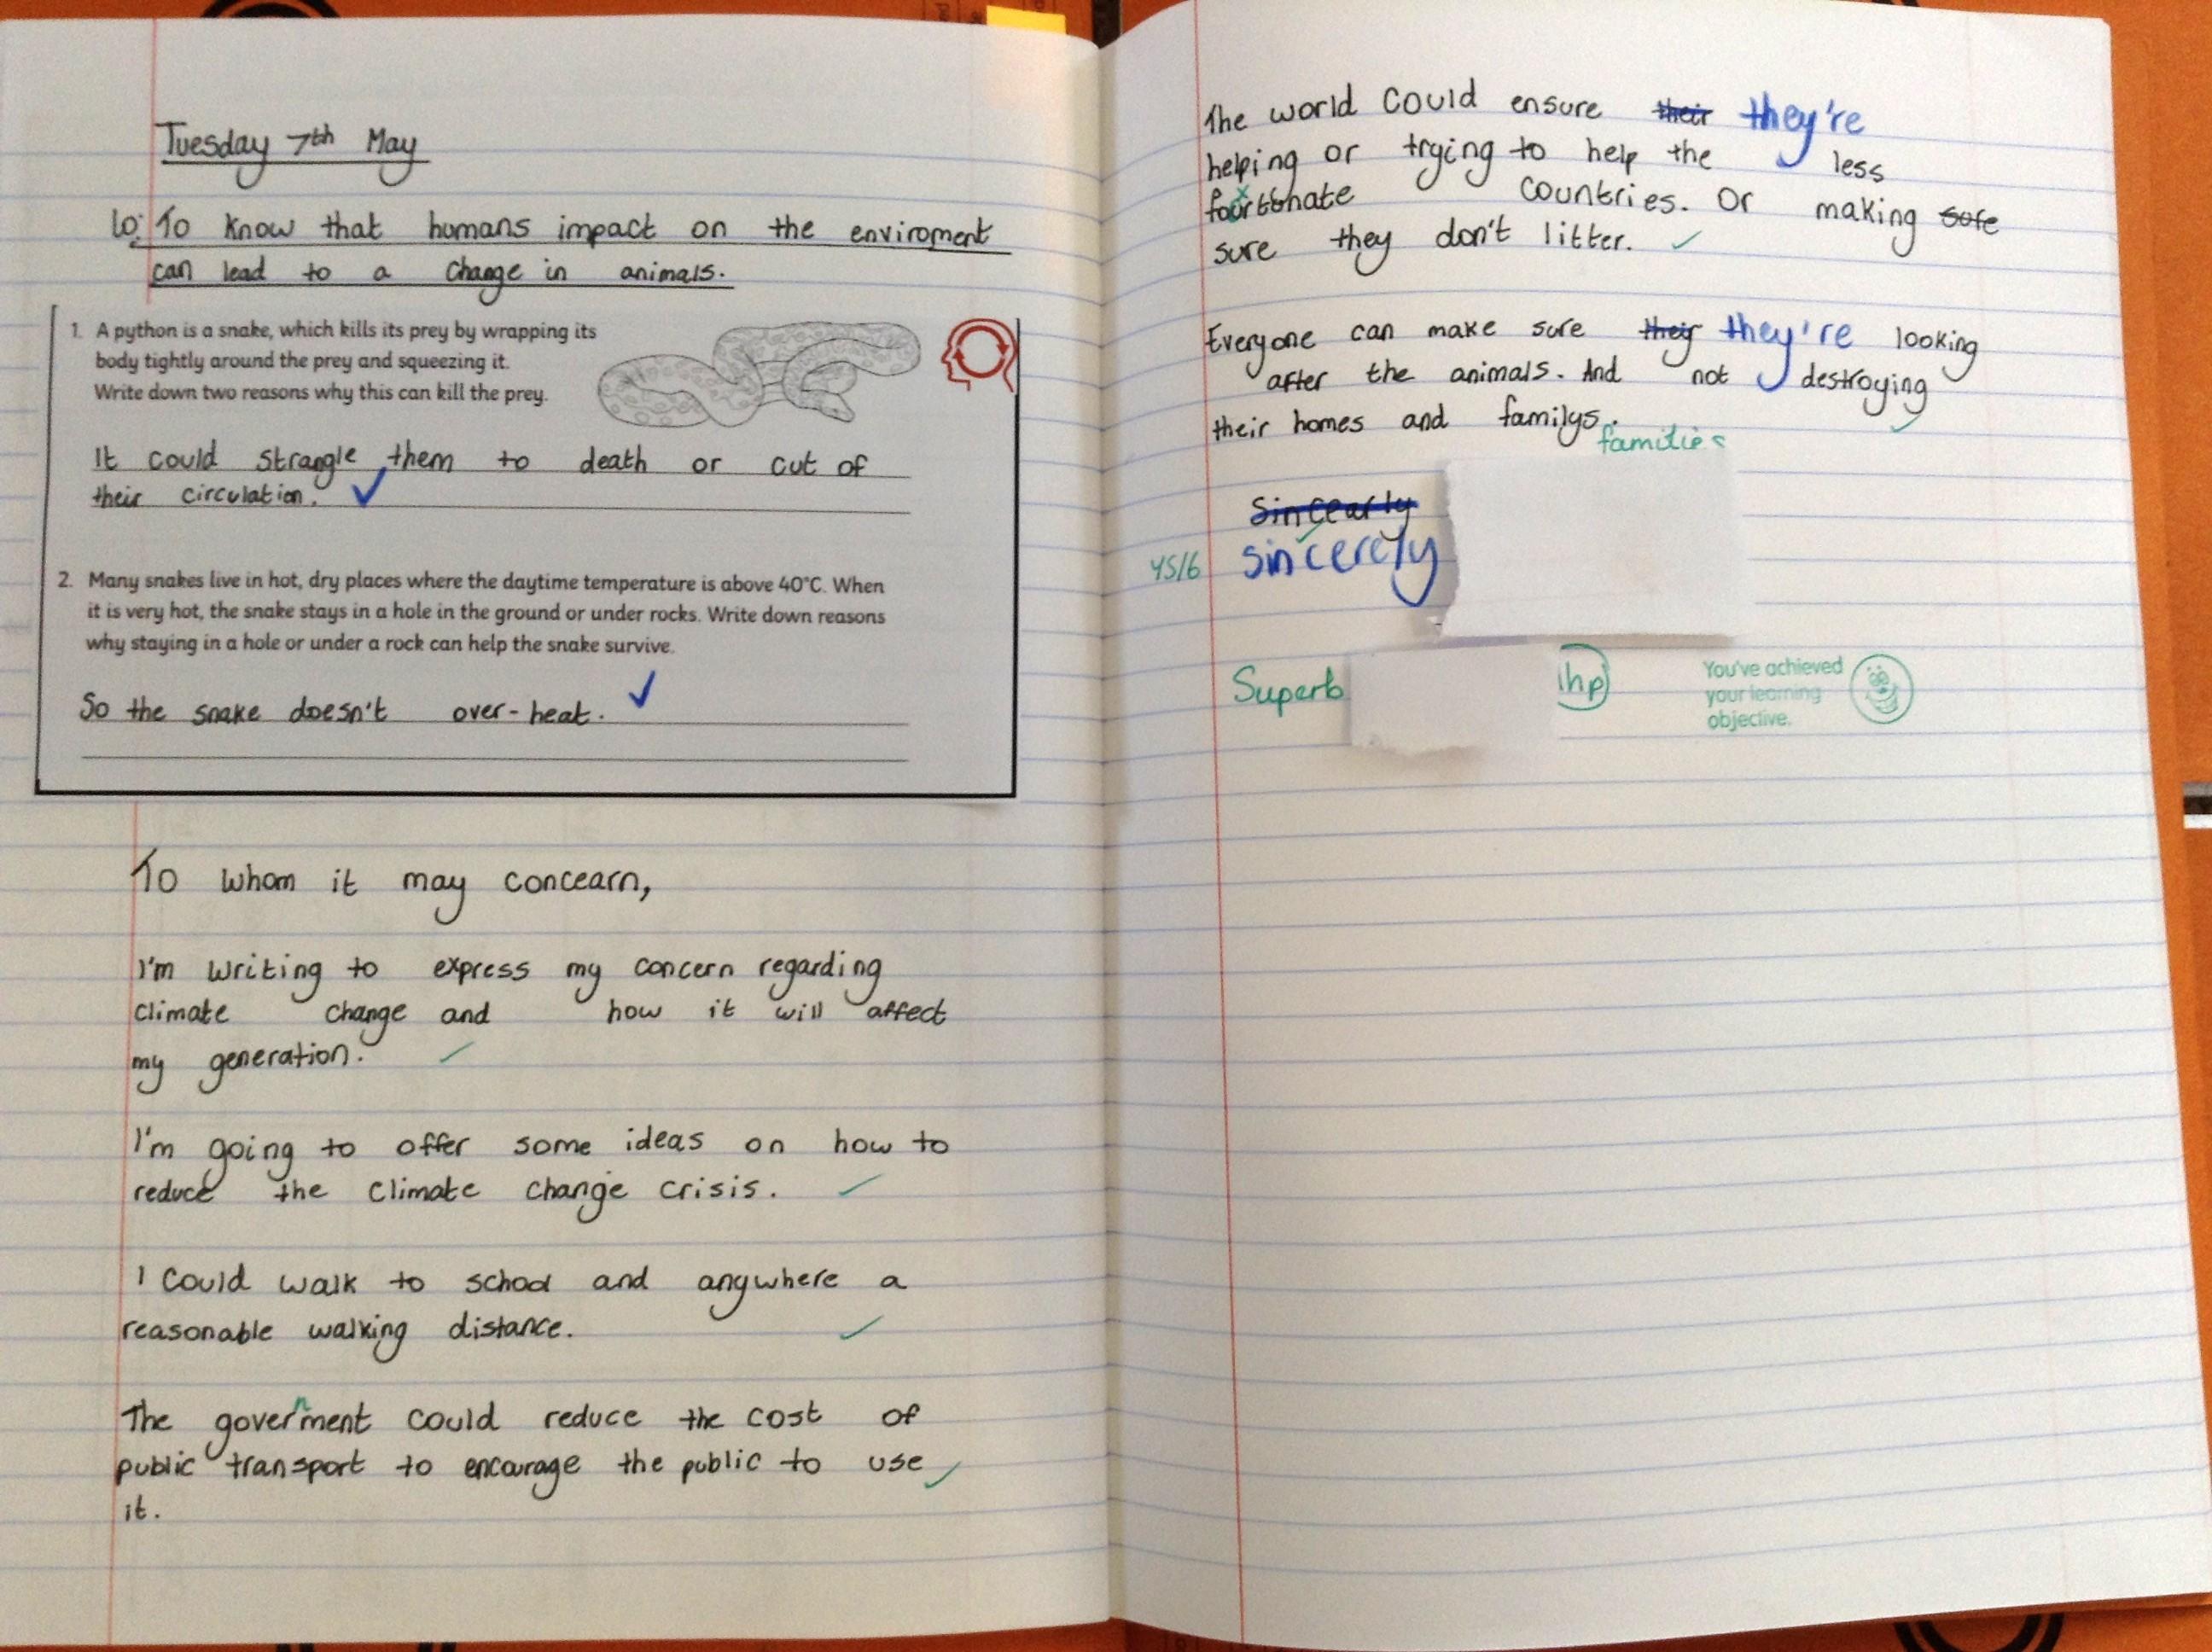 Tuesday 7th May
LO: To know that humans impact on the enviroment
can lead to a change in animals.
1. A python is a snake, which kills its prey by wrapping its
body tightly around the prey and squeezing it.
Write down two reasons why this can kill the prey.
It could strangle them to death or cut of
their circulation.
2. Many snakes live in hot, dry places where the daytime temperature is above 40°C. When
it is very hot, the snake stays in a hole in the ground or under rocks. Write down reasons
why staying in a hole or under a rock can help the snake survive.
So the snake doesn't over-heat.
To whom it may concearn,
I'm writing to express my concern regarding
climate change and how it will affect
my generation.
I'm going to offer some ideas on how to
reduce the climate change crisis.
I could walk to school and anywhere a
reasonable walking distance.
The government could reduce the cost of
public transport to encourage the public to use
it.
The world could ensure their they're
helping or trying to help the less
countries. Or making sure
sure they don't litter.
Everyone can make sure their they're looking
after the animals. And not destroying
their homes and familys.
families
Sincearly
YS/6 sincerely
Superb 1hp
You've achieved
your learning
objective.